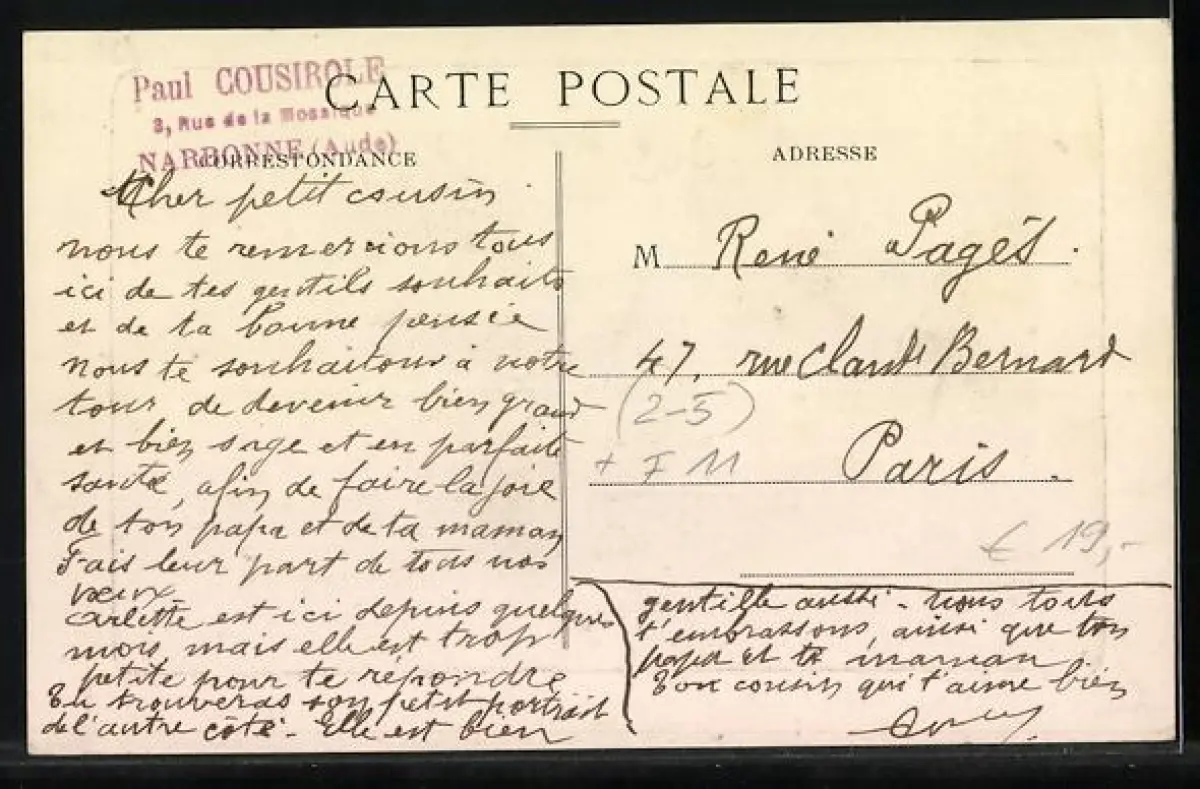 Paul COUSIROLE
3, Rue de la Mosaïque
NARBONNE (Aude)
CARTE POSTALE
CORRESPONDANCE
ADRESSE
Cher petit cousin
nous te remercions tous
ici de tes gentils souhaits
et de ta bonne pensée
nous te souhaitons à notre
tour de devenir bien grand
et bien sage et en parfaite
santé, afin de faire la joie
de ton papa et de ta maman
Fais leur part de tous nos
vœux
Arlette est ici depuis quelques
mois, mais elle est trop
petite pour te répondre
Tu trouveras son petit portrait
de l'autre côté. Elle est bien
gentille aussi. nous tous
t'embrassons, ainsi que ton
papa et ta maman
Ton cousin qui t'aime bien
M René Pagès.
47, rue Claude Bernard
(2-5)
+ F 11
Paris.
€ 19,-